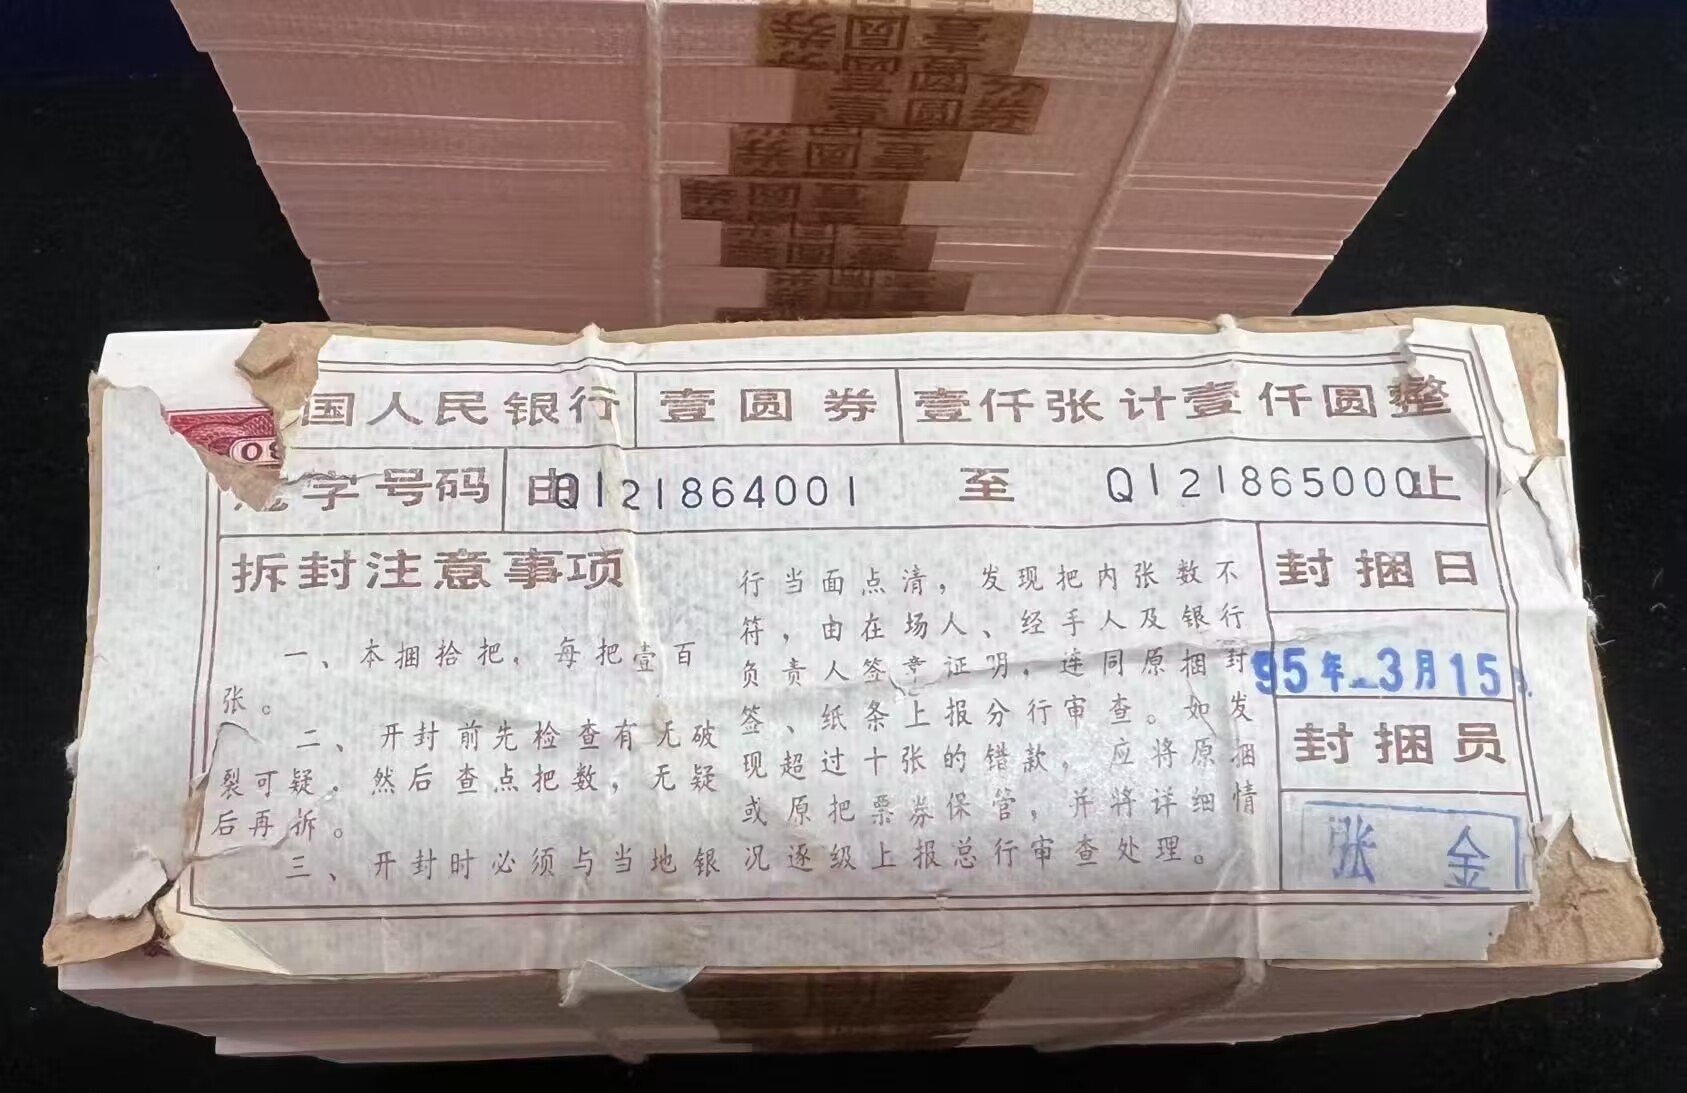 壹圆券
国人民银行 壹圆券 壹仟张计壹仟圆整
字号码 由Q121864001 至 Q121865000止
拆封注意事项
一、本捆拾把，每把壹百
张。
二、开封前先检查有无破
裂可疑。然后查点把数，无疑
后再拆。
三、开封时必须与当地银
行当面点清，发现把内张数不
符，由在场人、经手人及银行
负责人签章证明，连同原捆封
签、纸条上报分行审查。如发
现超过十张的错款，应将原捆
或原把票券保管，并将详细情
况逐级上报总行审查处理。
封捆日
95年3月15
封捆员
张金